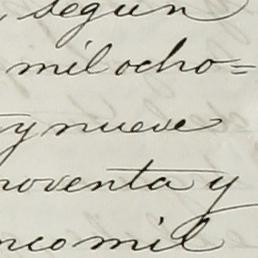 , según
mil ocho=
y nueve
noventa y
nco mil